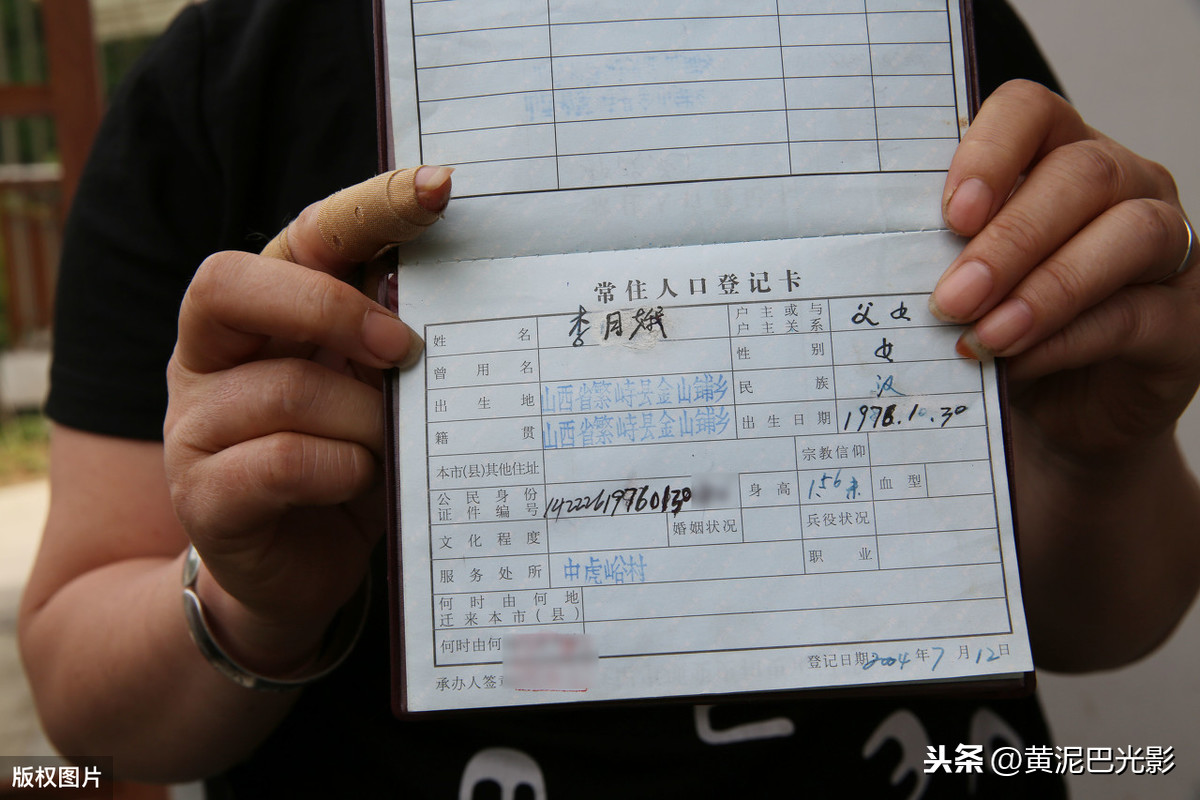 常住人口登记卡
姓名 李月娥 户主或与户主关系 父女
曾用名 性别 女
出生地 山西省繁峙县金山铺乡 民族 汉
籍贯 山西省繁峙县金山铺乡 出生日期 1976.10.30
本市(县)其他住址 宗教信仰
公民身份证件编号 身高 1.56米 血型
文化程度 婚姻状况 兵役状况
服务处所 中虎峪村 职业
何时由何地迁来本市(县)
何时由何
登记日期 2004年7月12日
承办人签章
版权图片
头条 @黄泥巴光影